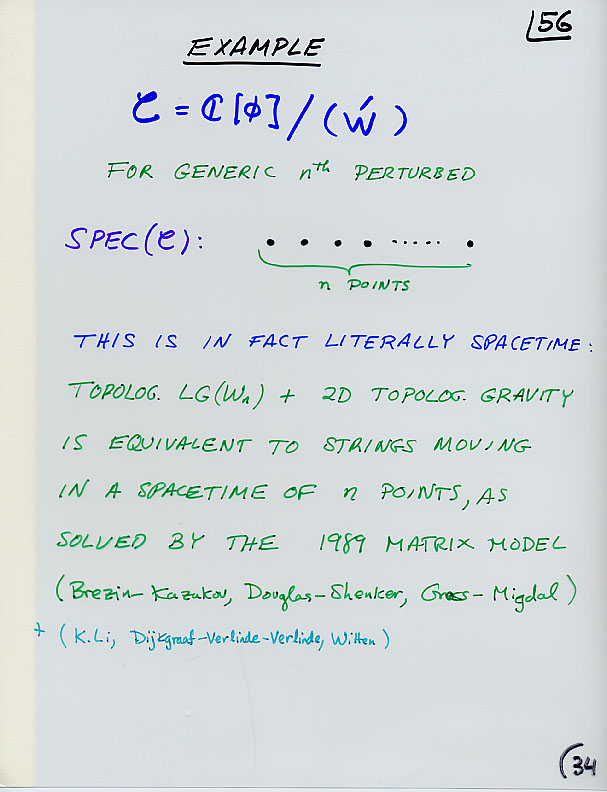 56
EXAMPLE
𝒞 = ℂ[ϕ]/(W′)
FOR GENERIC nth PERTURBED
SPEC(𝒞): • • • • ..... •
n POINTS
THIS IS IN FACT LITERALLY SPACETIME:
TOPOLOG. LG(Wn) + 2D TOPOLOG. GRAVITY
IS EQUIVALENT TO STRINGS MOVING
IN A SPACETIME OF n POINTS, AS
SOLVED BY THE 1989 MATRIX MODEL
(Brezin-Kazakov, Douglas-Shenker, Gross-Migdal)
+ (K.Li, Dijkgraaf-Verlinde-Verlinde, Witten)
34